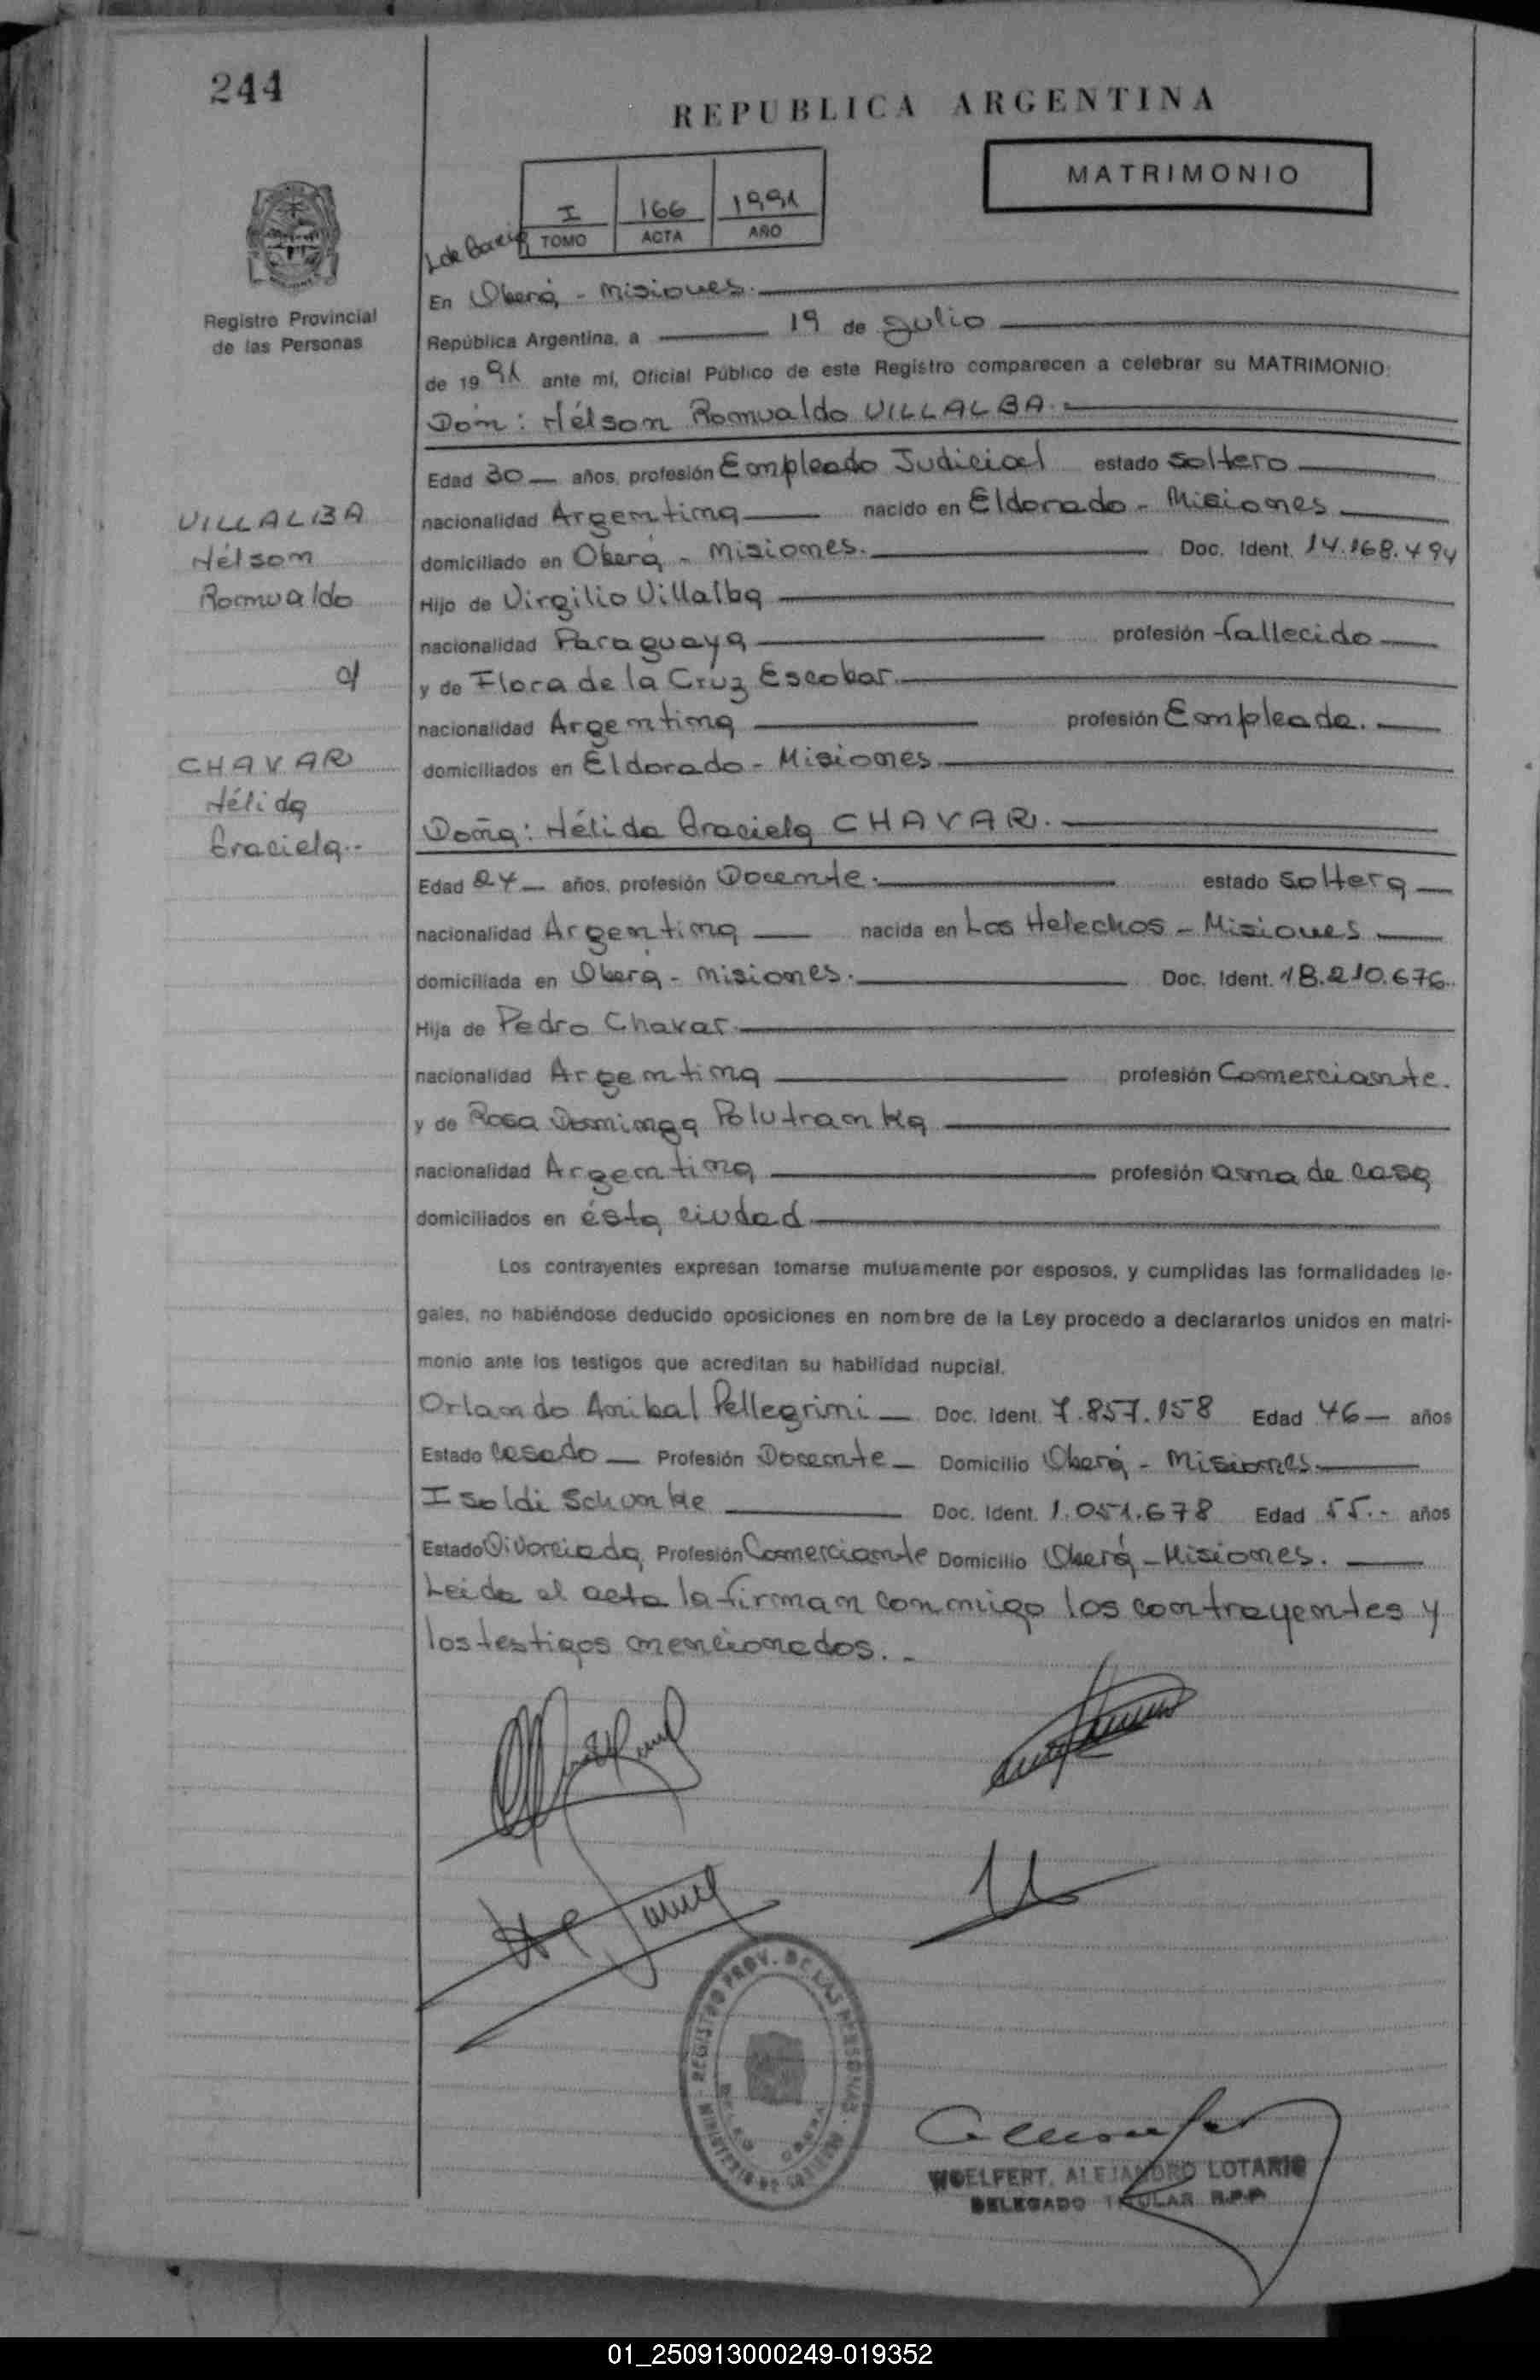 244
REPUBLICA ARGENTINA
MATRIMONIO
I 166 1991
TOMO ACTA AÑO
Registro Provincial
de las Personas
En Oberá - Misiones.
República Argentina, a 19 de Julio
de 1991 ante mí, Oficial Público de este Registro comparecen a celebrar su MATRIMONIO:
Don: Nélson Romualdo VILLALBA.
Edad 30 años, profesión Empleado Judicial estado soltero
nacionalidad Argentina nacido en Eldorado - Misiones
domiciliado en Oberá - Misiones. Doc. Ident. 14.168.494
Hijo de Virgilio Villalba
nacionalidad Paraguaya profesión fallecido
y de Flora de la Cruz Escobar.
nacionalidad Argentina profesión Empleada.
domiciliados en Eldorado - Misiones
VILLALBA
Nélson
Romualdo
c/
CHAVAR
Nélida
Graciela.-
Doña: Nélida Graciela CHAVAR.
Edad 24 años, profesión Docente. estado soltera
nacionalidad Argentina nacida en Los Helechos - Misiones
domiciliada en Oberá - Misiones. Doc. Ident. 18.210.676.
Hija de Pedro Chavar.
nacionalidad Argentina profesión Comerciante.
y de Rosa Dominga Polutranka
nacionalidad Argentina profesión ama de casa
domiciliados en ésta ciudad.
Los contrayentes expresan tomarse mutuamente por esposos, y cumplidas las formalidades le-
gales, no habiéndose deducido oposiciones en nombre de la Ley procedo a declararlos unidos en matri-
monio ante los testigos que acreditan su habilidad nupcial.
Orlando Anibal Pellegrini Doc. Ident. 7.857.158 Edad 46 años
Estado casado Profesión Docente Domicilio Oberá - Misiones.
Isoldi Schunke Doc. Ident. 1.051.678 Edad 55.- años
Estado Divorciada Profesión Comerciante Domicilio Oberá - Misiones.
Leida el acta la firman conmigo los contrayentes y
los testigos mencionados. -
REGISTRO PROV. DE LAS PERSONAS
WOELFERT, ALEJANDRO LOTARIO
DELEGADO TITULAR R.P.P.
01_250913000249-019352